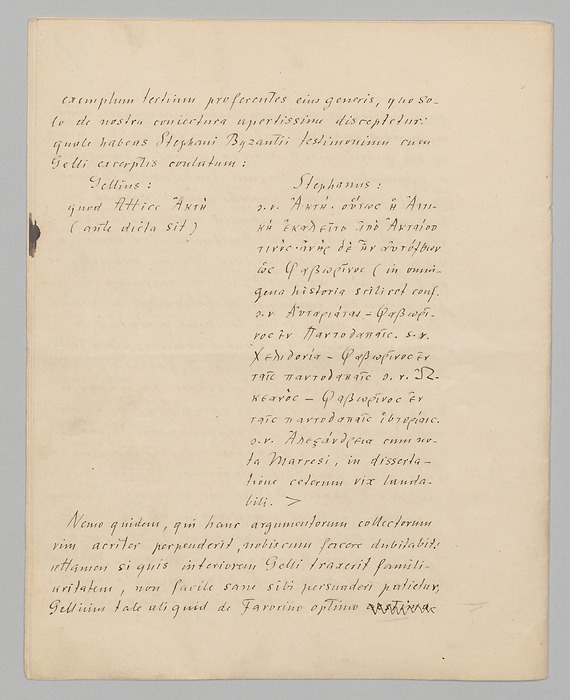 exemplum tertium proferentes eius generis, quo so-
lo de nostra coniectura apertissime disceptetur:
quale habeas Stephani Byzantii testimonium cum
Gelli excerptis conlatum:
Gellius:
quod Attice Ἀκτὴ
(ante dicta sit)
Stephanus:
s.v. Ἀκτή. οὕτως ἡ Ἀττι-
κὴ ἐκαλεῖτο ἀπὸ Ἀκταίου
τινός· ἀνὴρ δὲ ἦν αὐτόχθων
ὡς Φαβωρῖνος (in omni-
gena historia scilicet conf.
s.v. Αὐταριάται – Φαβωρῖ-
νος ἐν Παντοδαπαῖς. s.v.
Χελιδονία – Φαβωρῖνος ἐν
ταῖς παντοδαπαῖς s.v. Ὠ-
κεανός – Φαβωρῖνος ἐν
ταῖς παντοδαπαῖς ἱστορίαις.
s.v. Ἀλεξάνδρεια cum no-
ta Marresi, in disserta-
tione ceterum vix lauda-
bili. >
Nemo quidem, qui hanc argumentorum collectorum
vim acriter perpenderit, nobiscum facere dubitabit:
attamen si quis interiorem Gelli traxerit famili-
aritatem, non facile sane sibi persuaderi patietur,
Gellium tale aliquid de Favorino optimo